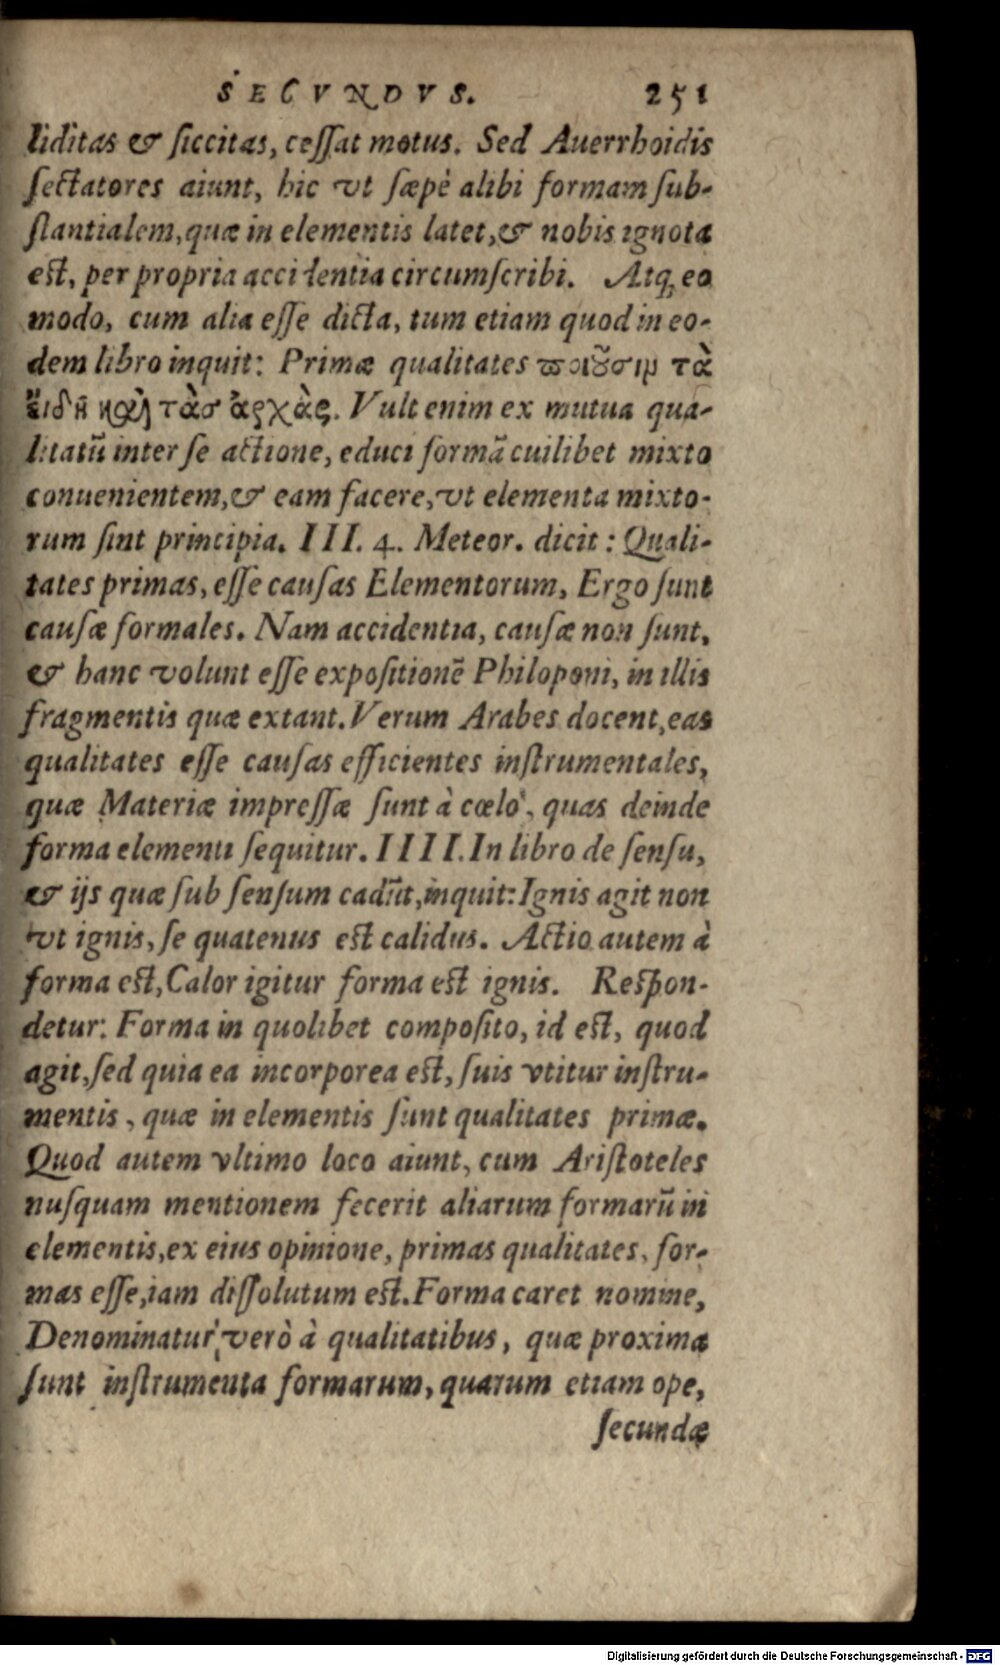 SECVNDVS. 251
liditas & ſiccitas, ceſſat motus. Sed Auerrhoidis
ſectatores aiunt, hic vt ſæpè alibi formam ſub-
ſtantialem, quæ in elementis latet, & nobis ignota
est, per propria accidentia circumſcribi. Atq; eo
modo, cum alia eſſe dicta, tum etiam quod in eo-
dem libro inquit: Primæ qualitates ποιοῦσιν τὰ
εἴδη καὶ τὰσ ἀρχὰς. Vult enim ex mutua qua-
litatũ inter ſe actione, educi formã cuilibet mixto
conuenientem, & eam facere, vt elementa mixto-
rum ſint principia. III. 4. Meteor. dicit: Quali-
tates primas, eſſe cauſas Elementorum, Ergo ſunt
cauſæ formales. Nam accidentia, cauſæ non ſunt,
& hanc volunt eſſe expoſitionẽ Philoponi, in illis
fragmentis quæ extant. Verum Arabes docent, eas
qualitates eſſe cauſas efficientes inſtrumentales,
quæ Materiæ impreſſæ ſunt à cœlo, quas deinde
forma elementi ſequitur. IIII. In libro de ſenſu,
& ijs quæ ſub ſenſum cadũt, inquit: Ignis agit non
vt ignis, ſe quatenus est calidus. Actio autem à
forma est, Calor igitur forma est ignis. Respon-
detur: Forma in quolibet compoſito, id est, quod
agit, ſed quia ea incorporea est, ſuis vtitur inſtru-
mentis, quæ in elementis ſunt qualitates primæ.
Quod autem vltimo loco aiunt, cum Ariſtoteles
nuſquam mentionem fecerit aliarum formarũ in
elementis, ex eius opinione, primas qualitates, for-
mas eſſe, iam diſſolutum est. Forma caret nomine,
Denominatur verò à qualitatibus, quæ proxima
ſunt inſtrumenta formarum, quarum etiam ope,
ſecundæ
Digitalisierung gefördert durch die Deutsche Forschungsgemeinschaft - DFG